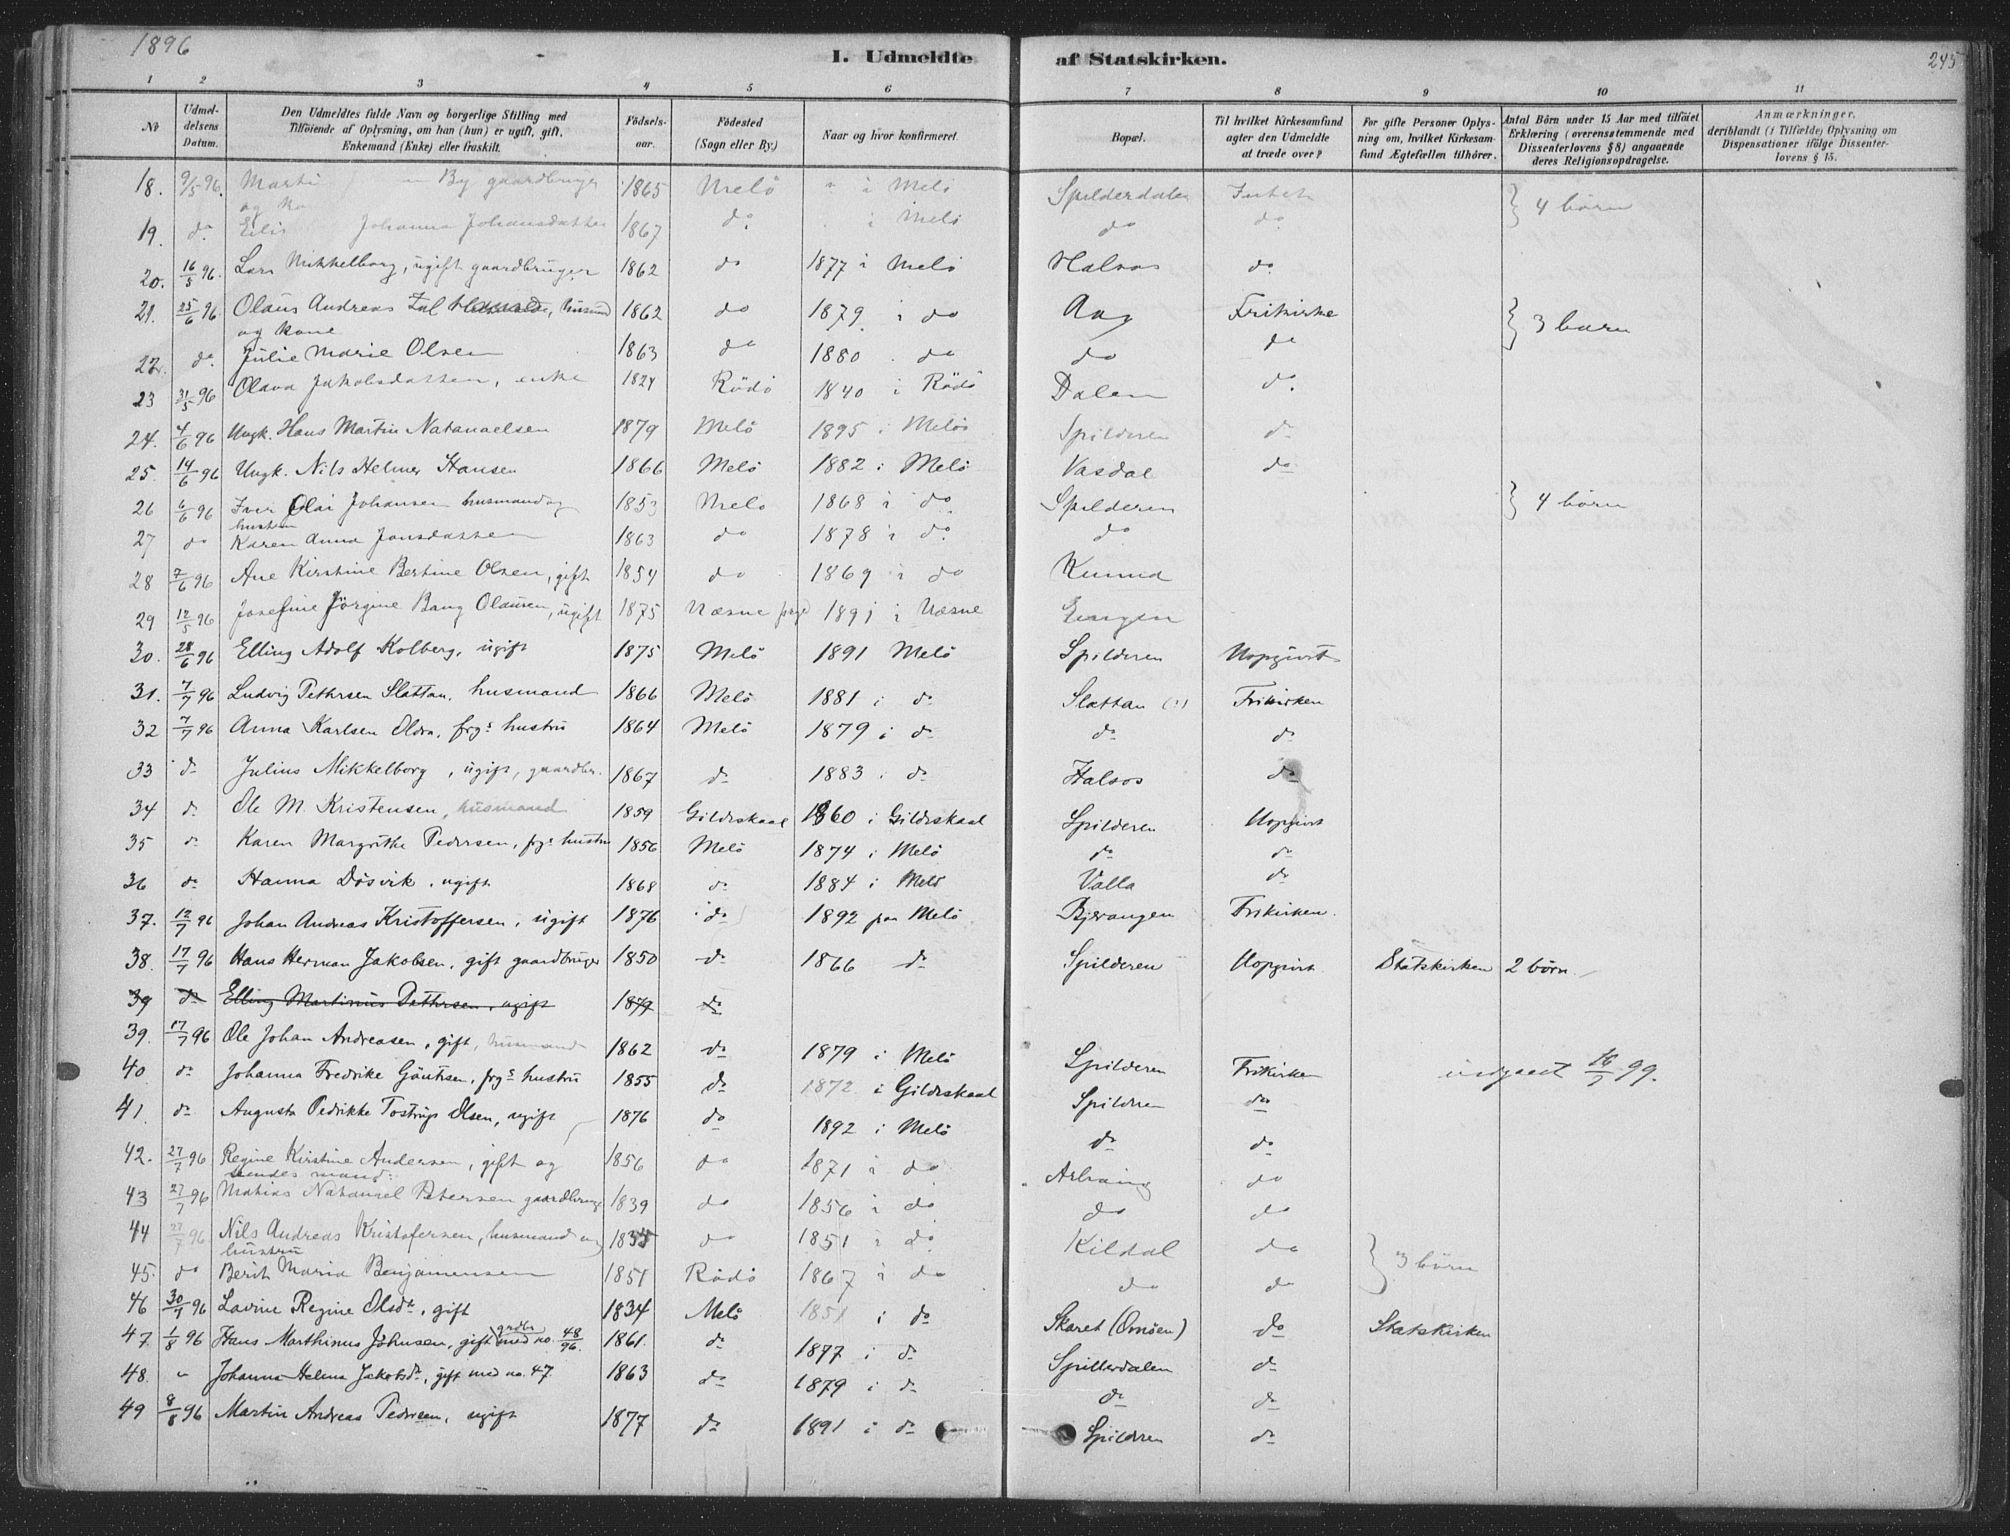 1896
I. Udmeldte af Statskirken.
245
1 2 3 4 5 6 7 8 9 10 11
No
Udmeldelsens Datum.
Den Udmeldtes fulde Navn og borgerlige Stilling med
Tilföiende af Oplysning, om han (hun) er ugift, gift,
Enkemand (Enke) eller fraskilt.
Födselsaar.
Födested
(Sogn eller By.)
Naar og hvor konfirmeret.
Bopæl.
Til hvilket Kirkesamfund
agter den Udmeldte
at træde over?
For gifte Personer Oplysning om, hvilket Kirkesamfund Ægtefællen tilhörer.
Antal Börn under 15 Aar med tilföiet
Erklæring (overensstemmende med
Dissenterlovens § 8) angaaende
deres Religionsopdragelse.
Anmærkninger,
deriblandt (i Tilfælde) Oplysning om
Dispensationer ifölge Dissenterlovens § 15.
18. 9/5 96. By gaardbruger 1865 Melö i Melö Spilderdalen Intet } 4 börn
19. do Johanna Johansdatter 1867 do i Melö do do
20. 16/5 96. Lars Mikkelborg, ugift gaardbruger 1862 do 1877 i Melö Halsos do
21. 25/6 96 Olaus Andreas husmd 1862 do 1879 i do Aag Frikirke } 3 barn
og kone
22. do Julie Marie Olsen 1863 do 1880 do do do
23 31/5 96 Olava Jakobsdatter, enke 1824 Rödö 1840 i Rödö Dalen do
24. 4/6 96 Ungk. Hans Martin Natanaelsen 1879 Melö 1895 i Melöi Spilderen do
25. 14/6 96 Ungk. Nils Helmer Hansen 1866 Melö 1882 i Melö Vasdal do
26 6/6 96 Iver Olai Johansen husmand og 1853 Melö 1868 i do Spilderen } 4 börn
hustru
27 do Karen Anna Jonsdatter 1863 do 1878 i do do
28 7/6 96 Ane Kirstine Bertine Olsen, gift 1854 do 1869 i do Kunna
29 12/5 96 Josefine Jörgine Bang Olausen, ugift 1875 Næsne prgd 1891 i Næsne Engen
30. 28/6 96 Elling Adolf Kolberg, ugift 1875 Melö 1891 Melö Spilderen Uopgivet
31. 7/7 96 Ludvig Pethrsen Slattan, husmand 1866 Melö 1881 i do Slattan (?) Frikirken
32 7/7 96 Anna Karlsen Oldra, frgs hustru 1864 Melö 1879 i do do do
33 do Julius Mikkelborg, ugift, gaardbr. 1867 do 1883 i do Halsos do
34 do Ole M. Kristensen, husmand 1859 Gildeskaal 1860 i Gildeskaal Spilderen Uopgivet
35 do Karen Margrethe Pedersen, frgs hustru 1856 Melö 1874 i Melö do do
36 do Hanna Dösvik, ugift 1868 do 1884 i Melö Valla do
37. 12/7 96 Johan Andreas Kristoffersen, ugift 1876 do 1892 paa Melö Bjerangen Frikirken.
38. 17/7 96 Hans Herman Jakobsen, gift gaardbruger 1850 do 1866 do Spilderen Uopgivet Statskirken 2 börn
39 do Elling Martinus Pethrsen, ugift 1879 do
39. 17/7 96 Ole Johan Andreasen, gift, husmand 1862 do 1879 i Melö Spilderen Frikirken udgaaet 16/7 99.
40 do Johanna Fredrike Göntsen, frgs hustru 1855 do 1872 i Gildeskaal Spildren do
41. do Augusta Pedrikke Tostrup Olsen, ugift 1876 do 1892 i Melö do do
42. 27/7 96 Regine Kirstine Andersen, gift og 1856 do 1871 i do Arhaug do
hendes mand:
43 27/7 96 Matias Natanael Petersen gaardbruger 1839 do 1856 i do do do
44 27/7 96 Nils Andreas Kristofersen, husmand og 1835 do 1851 i do Kildal do } 3 börn
hustru
45. do Berit Maria Benjamensen 1851 Rödö 1867 i do do do
46 30/7 96 Lavine Regine Olsdtr, gift 1834 Melö 1851 i do Skaret (Omöen) do Statskirken
47. 1/8 96 Hans Marthinus Johnsen, gift grdbr med no. 48/96. 1861. do 1877 i do Spillerdalen do
48. " Johanna Helena Jakobsdr, gift med no. 47 1863 do 1879 i do do do
49 8/8 96 Martin Andreas Pedersen, ugift 1877 do 1891 i do Spildren do